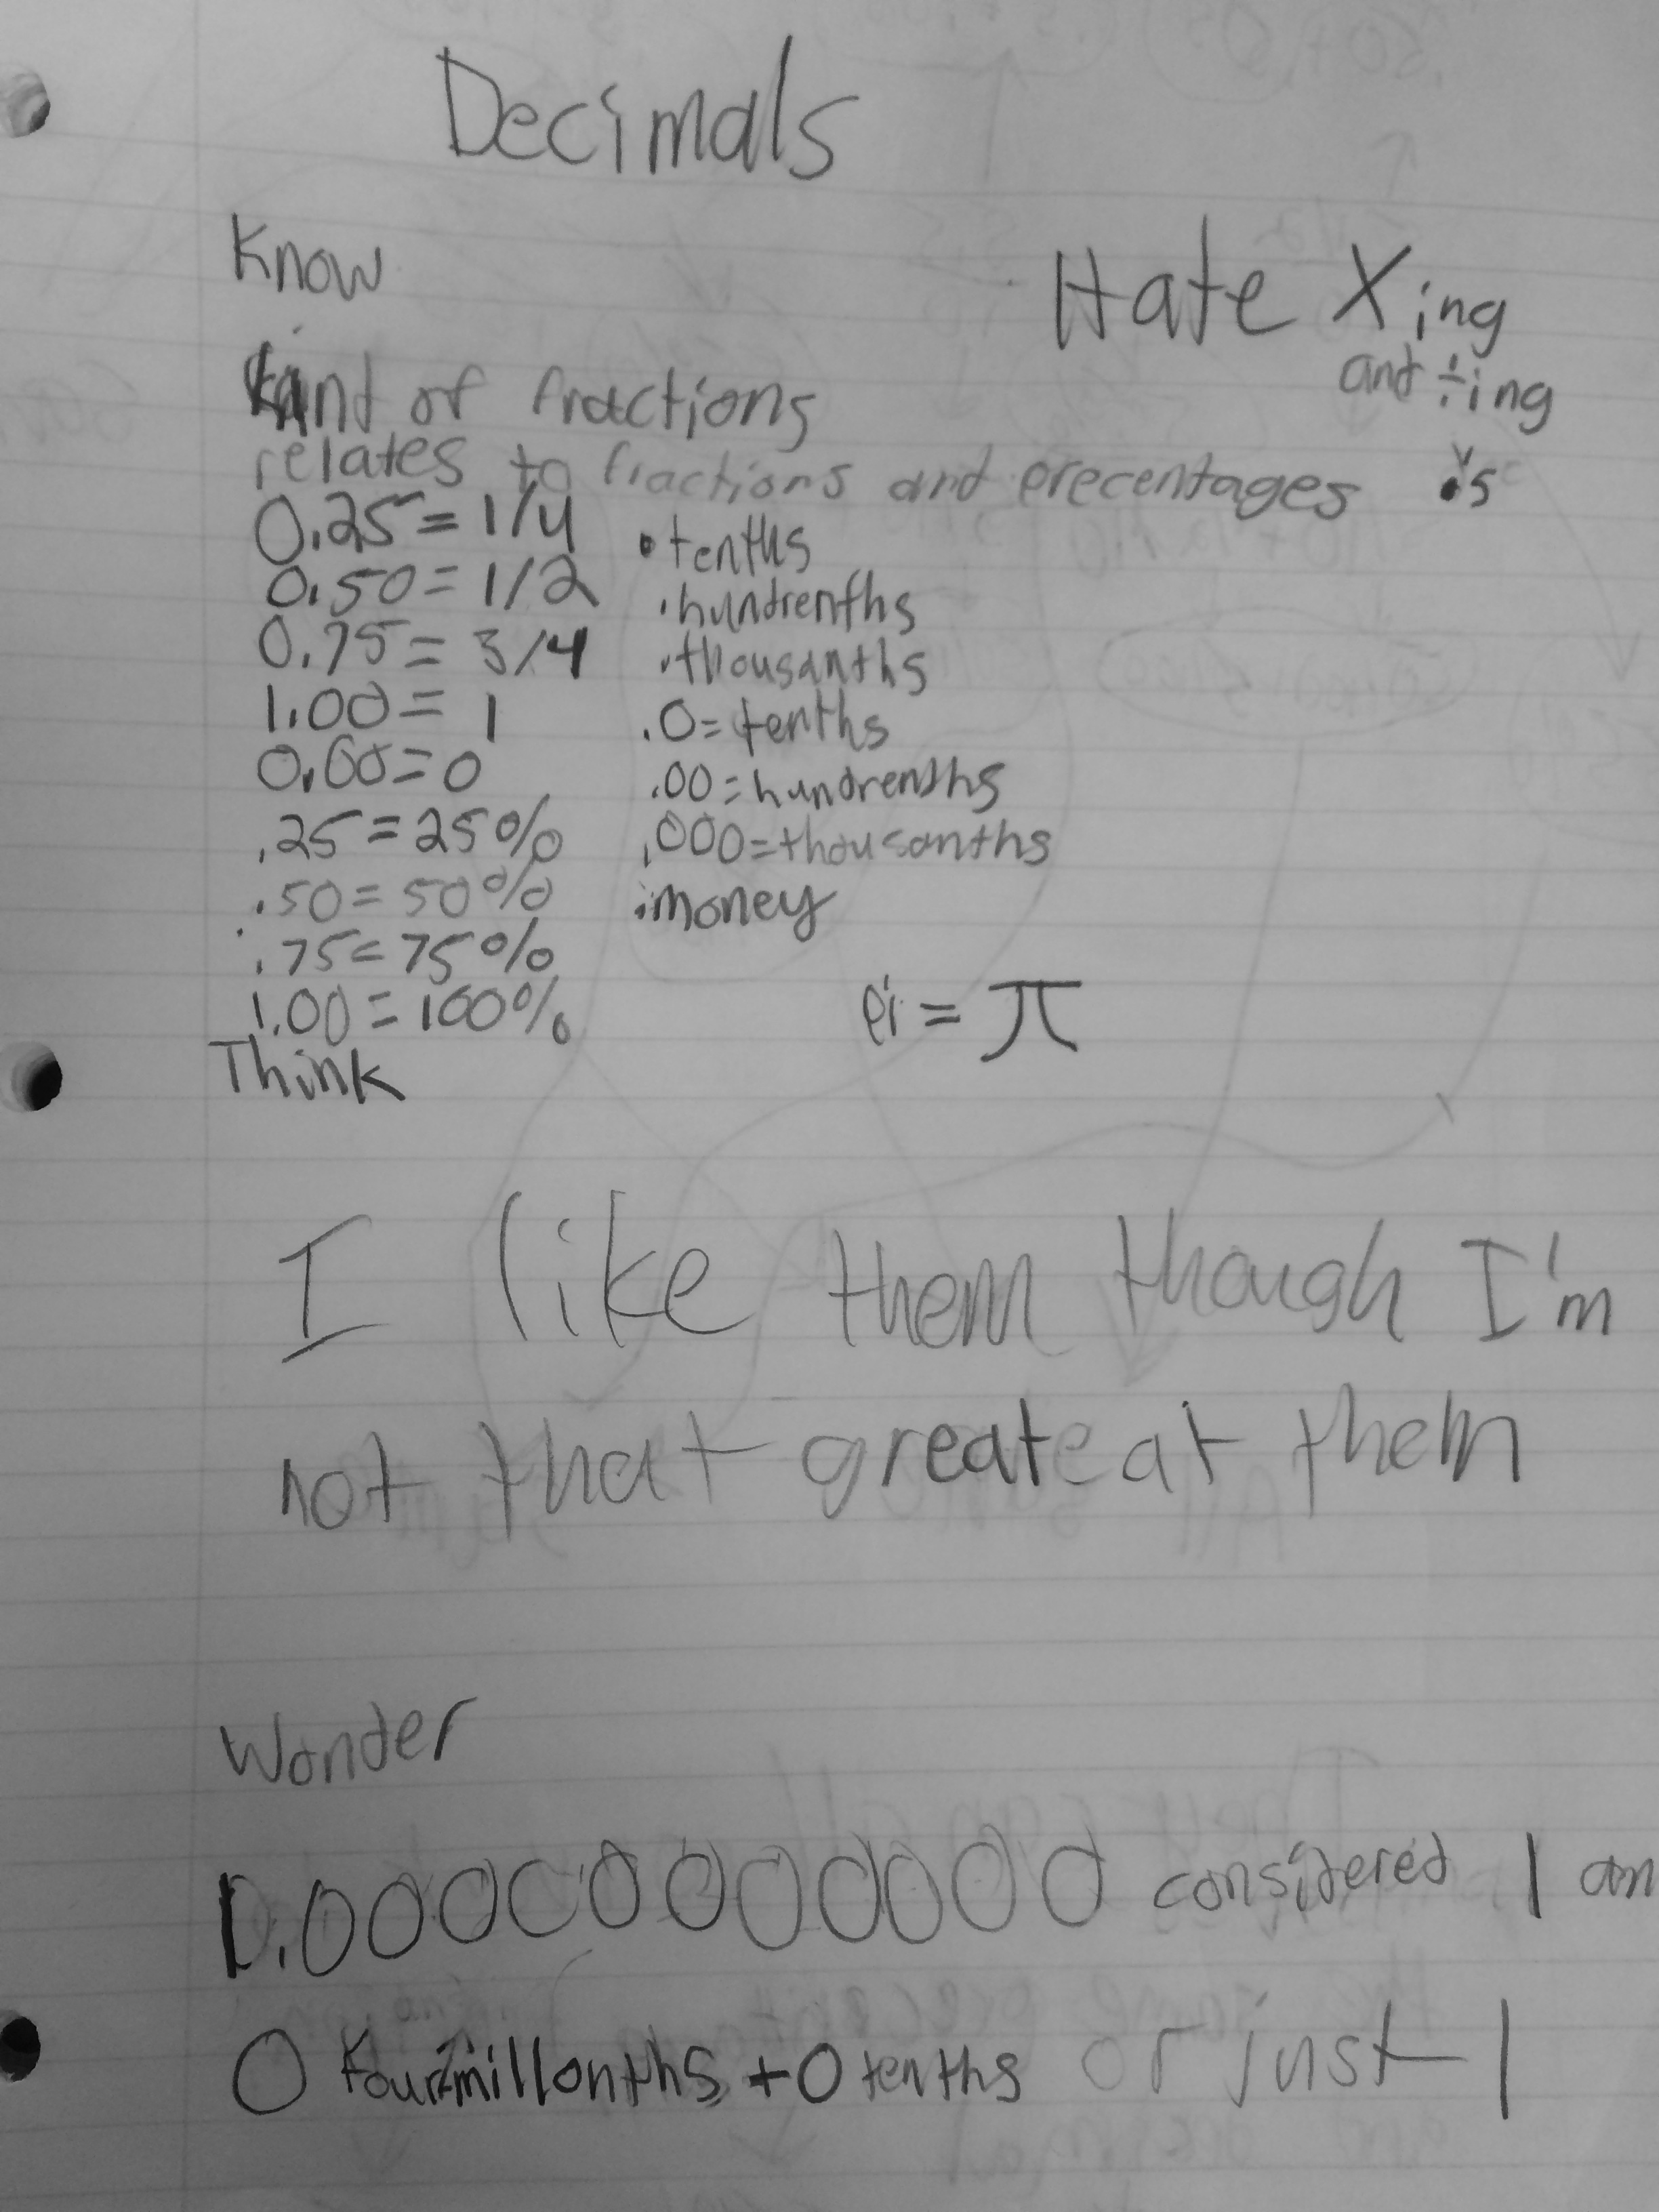 Decimals
Know
Hate Xing
and ÷ing
.'s
Kind of fractions
relates to fractions and precentages
0.25 = 1/4
0.50 = 1/2
0.75 = 3/4
1.00 = 1
0.00 = 0
.25 = 25%
.50 = 50%
.75 = 75%
1.00 = 100%
• tenths
. hundrenths
. thousanths
.0 = tenths
.00 = hundrenths
.000 = thousanths
. money
pi = π
Think
I like them though I'm
not that great at them
Wonder
1.00000000000 considered 1 an
0 millonths + 0 tenths or just 1